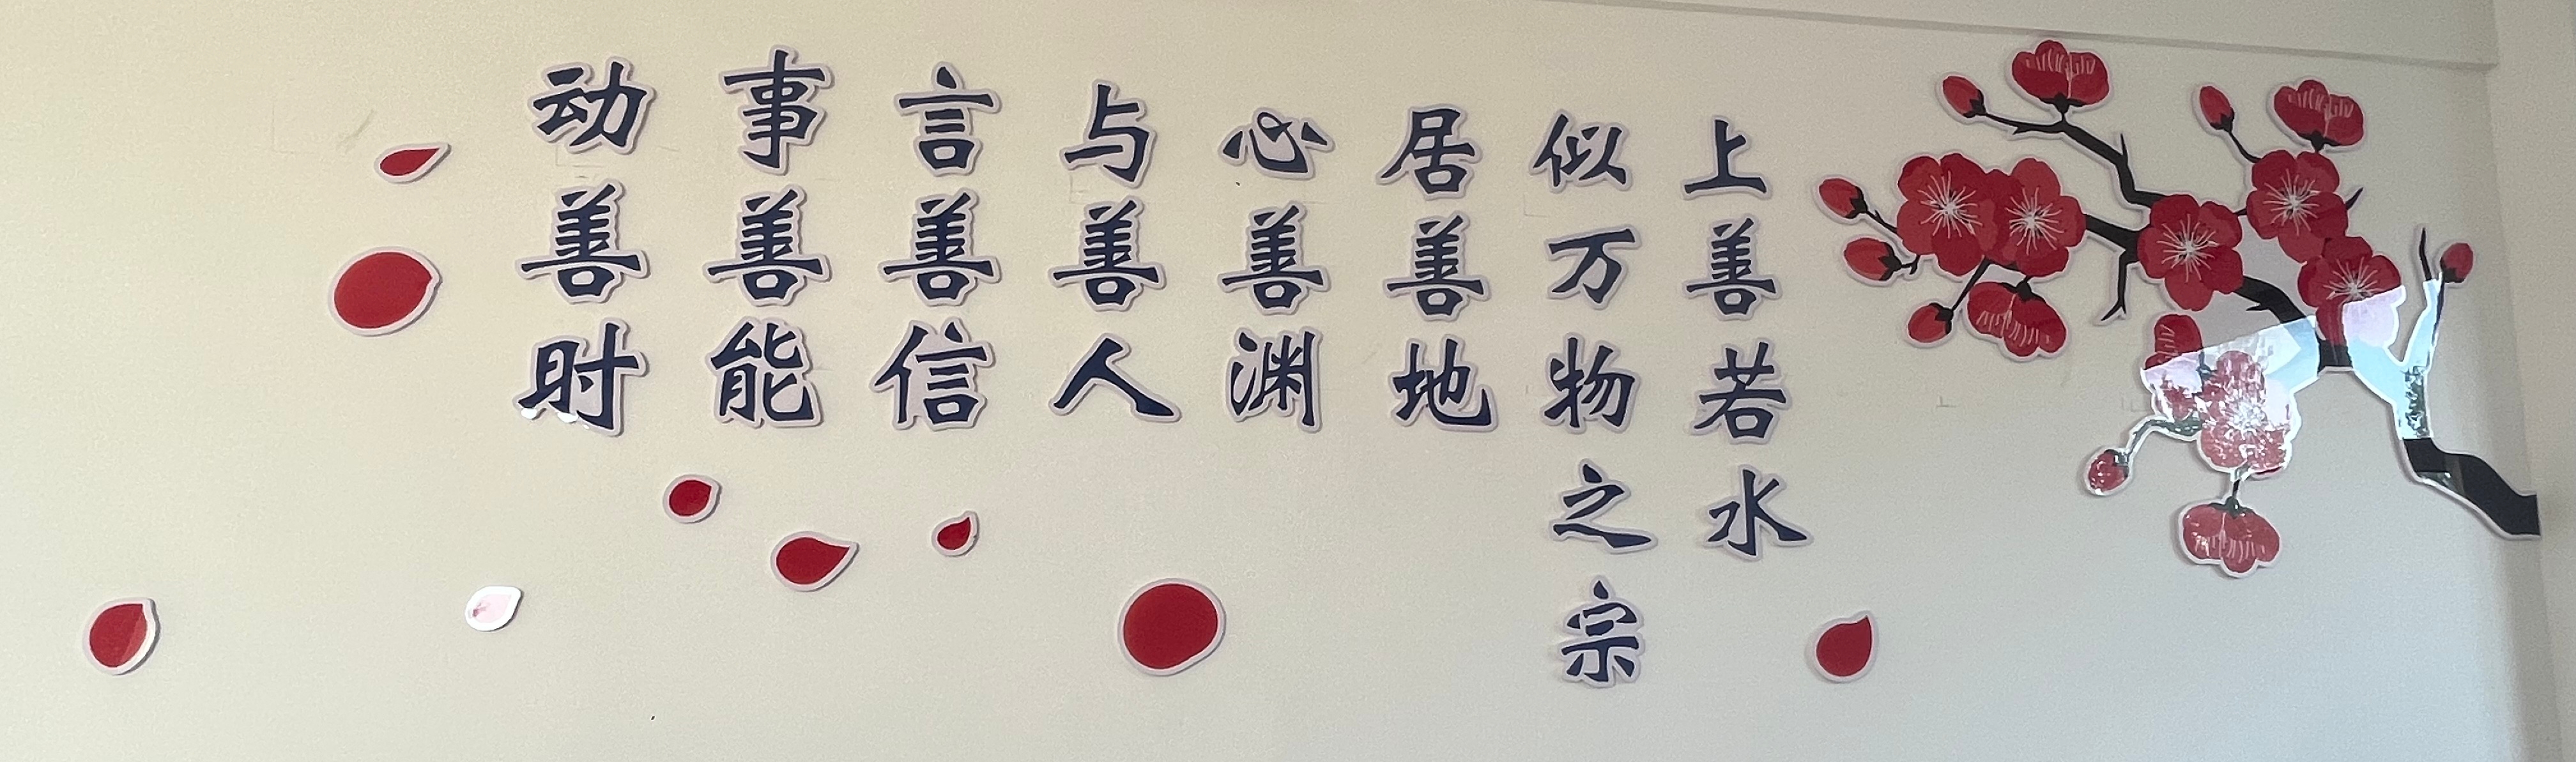 上善若水
似万物之宗
居善地
心善渊
与善人
言善信
事善能
动善时